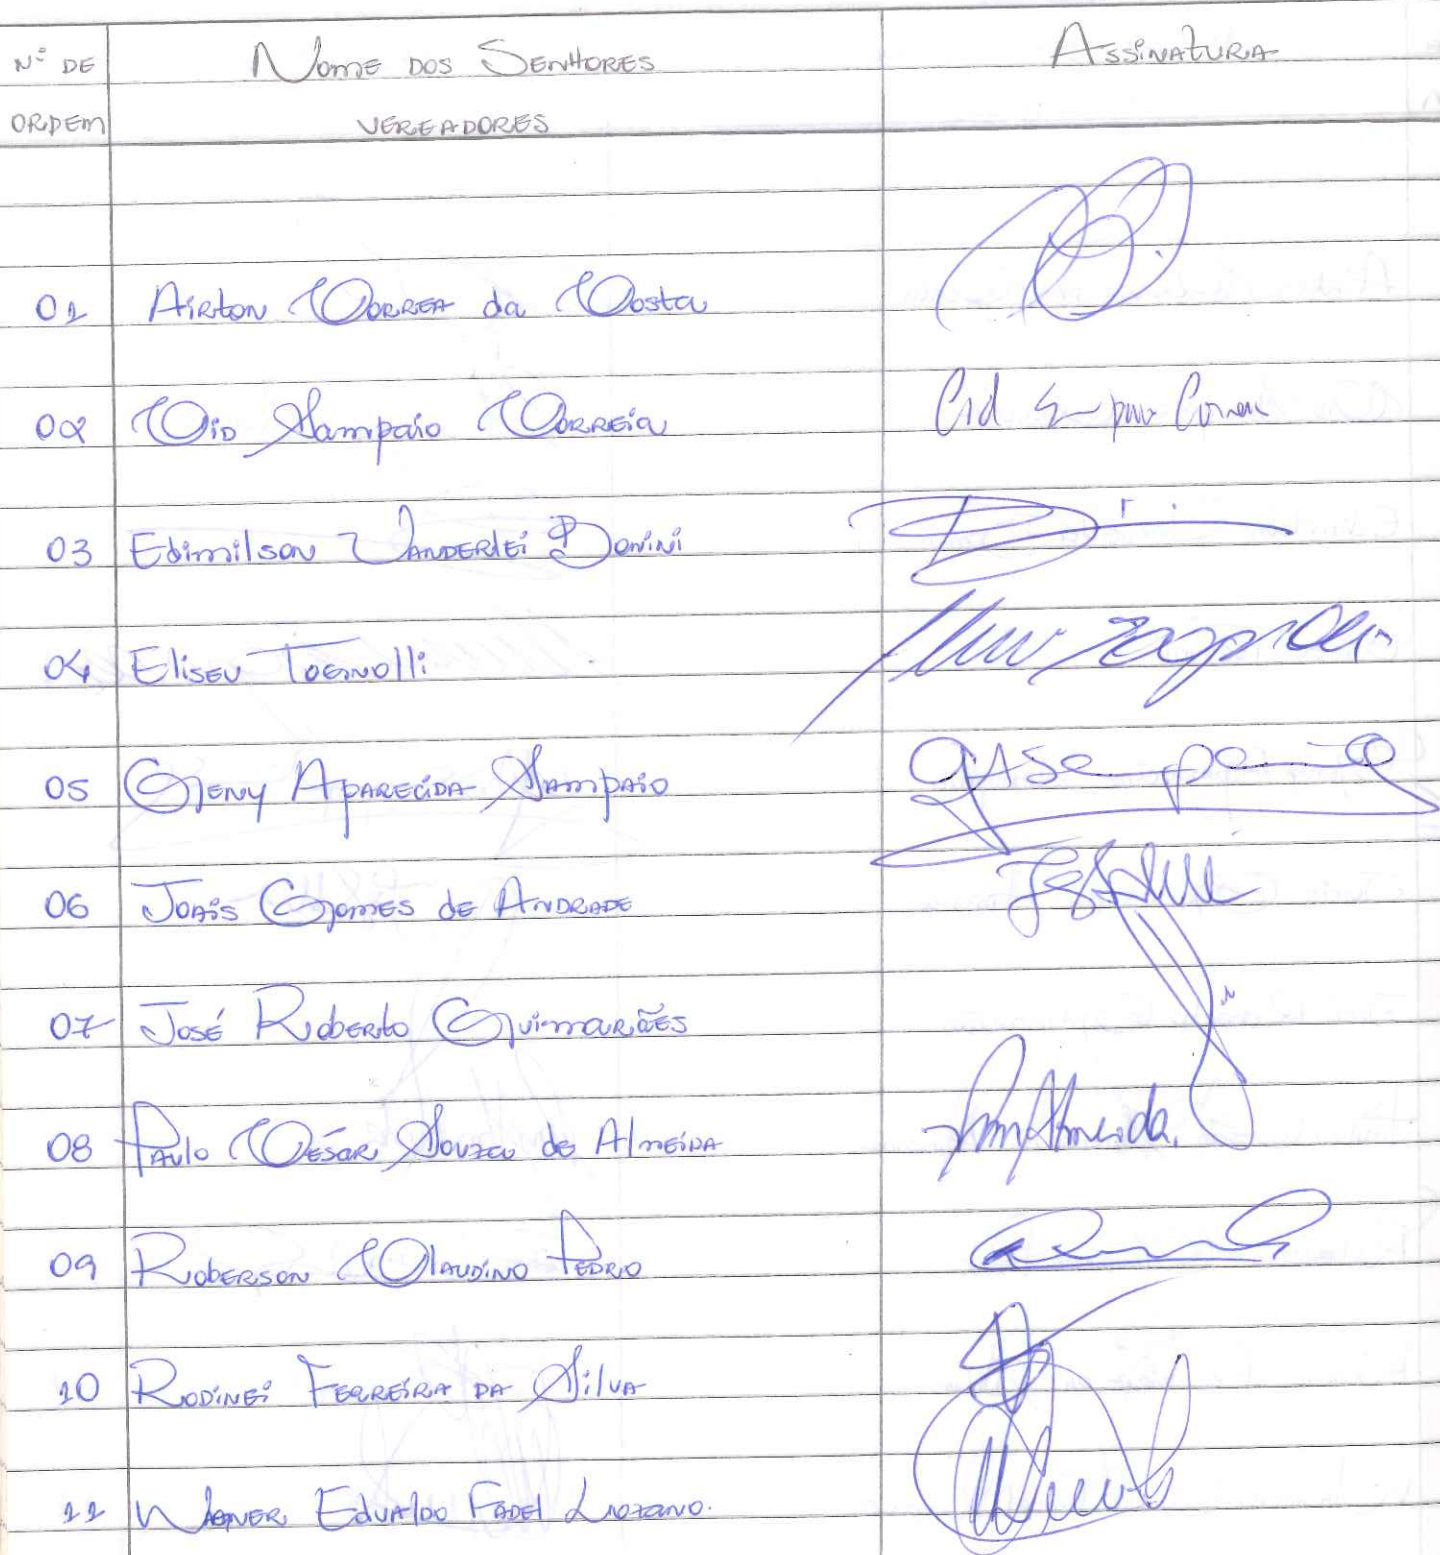 Nº DE Nome dos Senhores Assinatura
ORDEM VEREADORES
01 Airton Correa da Costa
02 Cid Sampaio Correia Cid Correa
03 Edimilson Vanderlei Donini
04 Eliseu Tognolli
05 Geny Aparecida Sampaio GASampaio
06 Joais Gomes de Andrade
07 José Roberto Guimarães
08 Paulo César Souza de Almeida Almeida
09 Roberson Claudino Pedro
10 Rodinei Ferreira da Silva
11 Wagner Edvaldo Fadel Lozano.